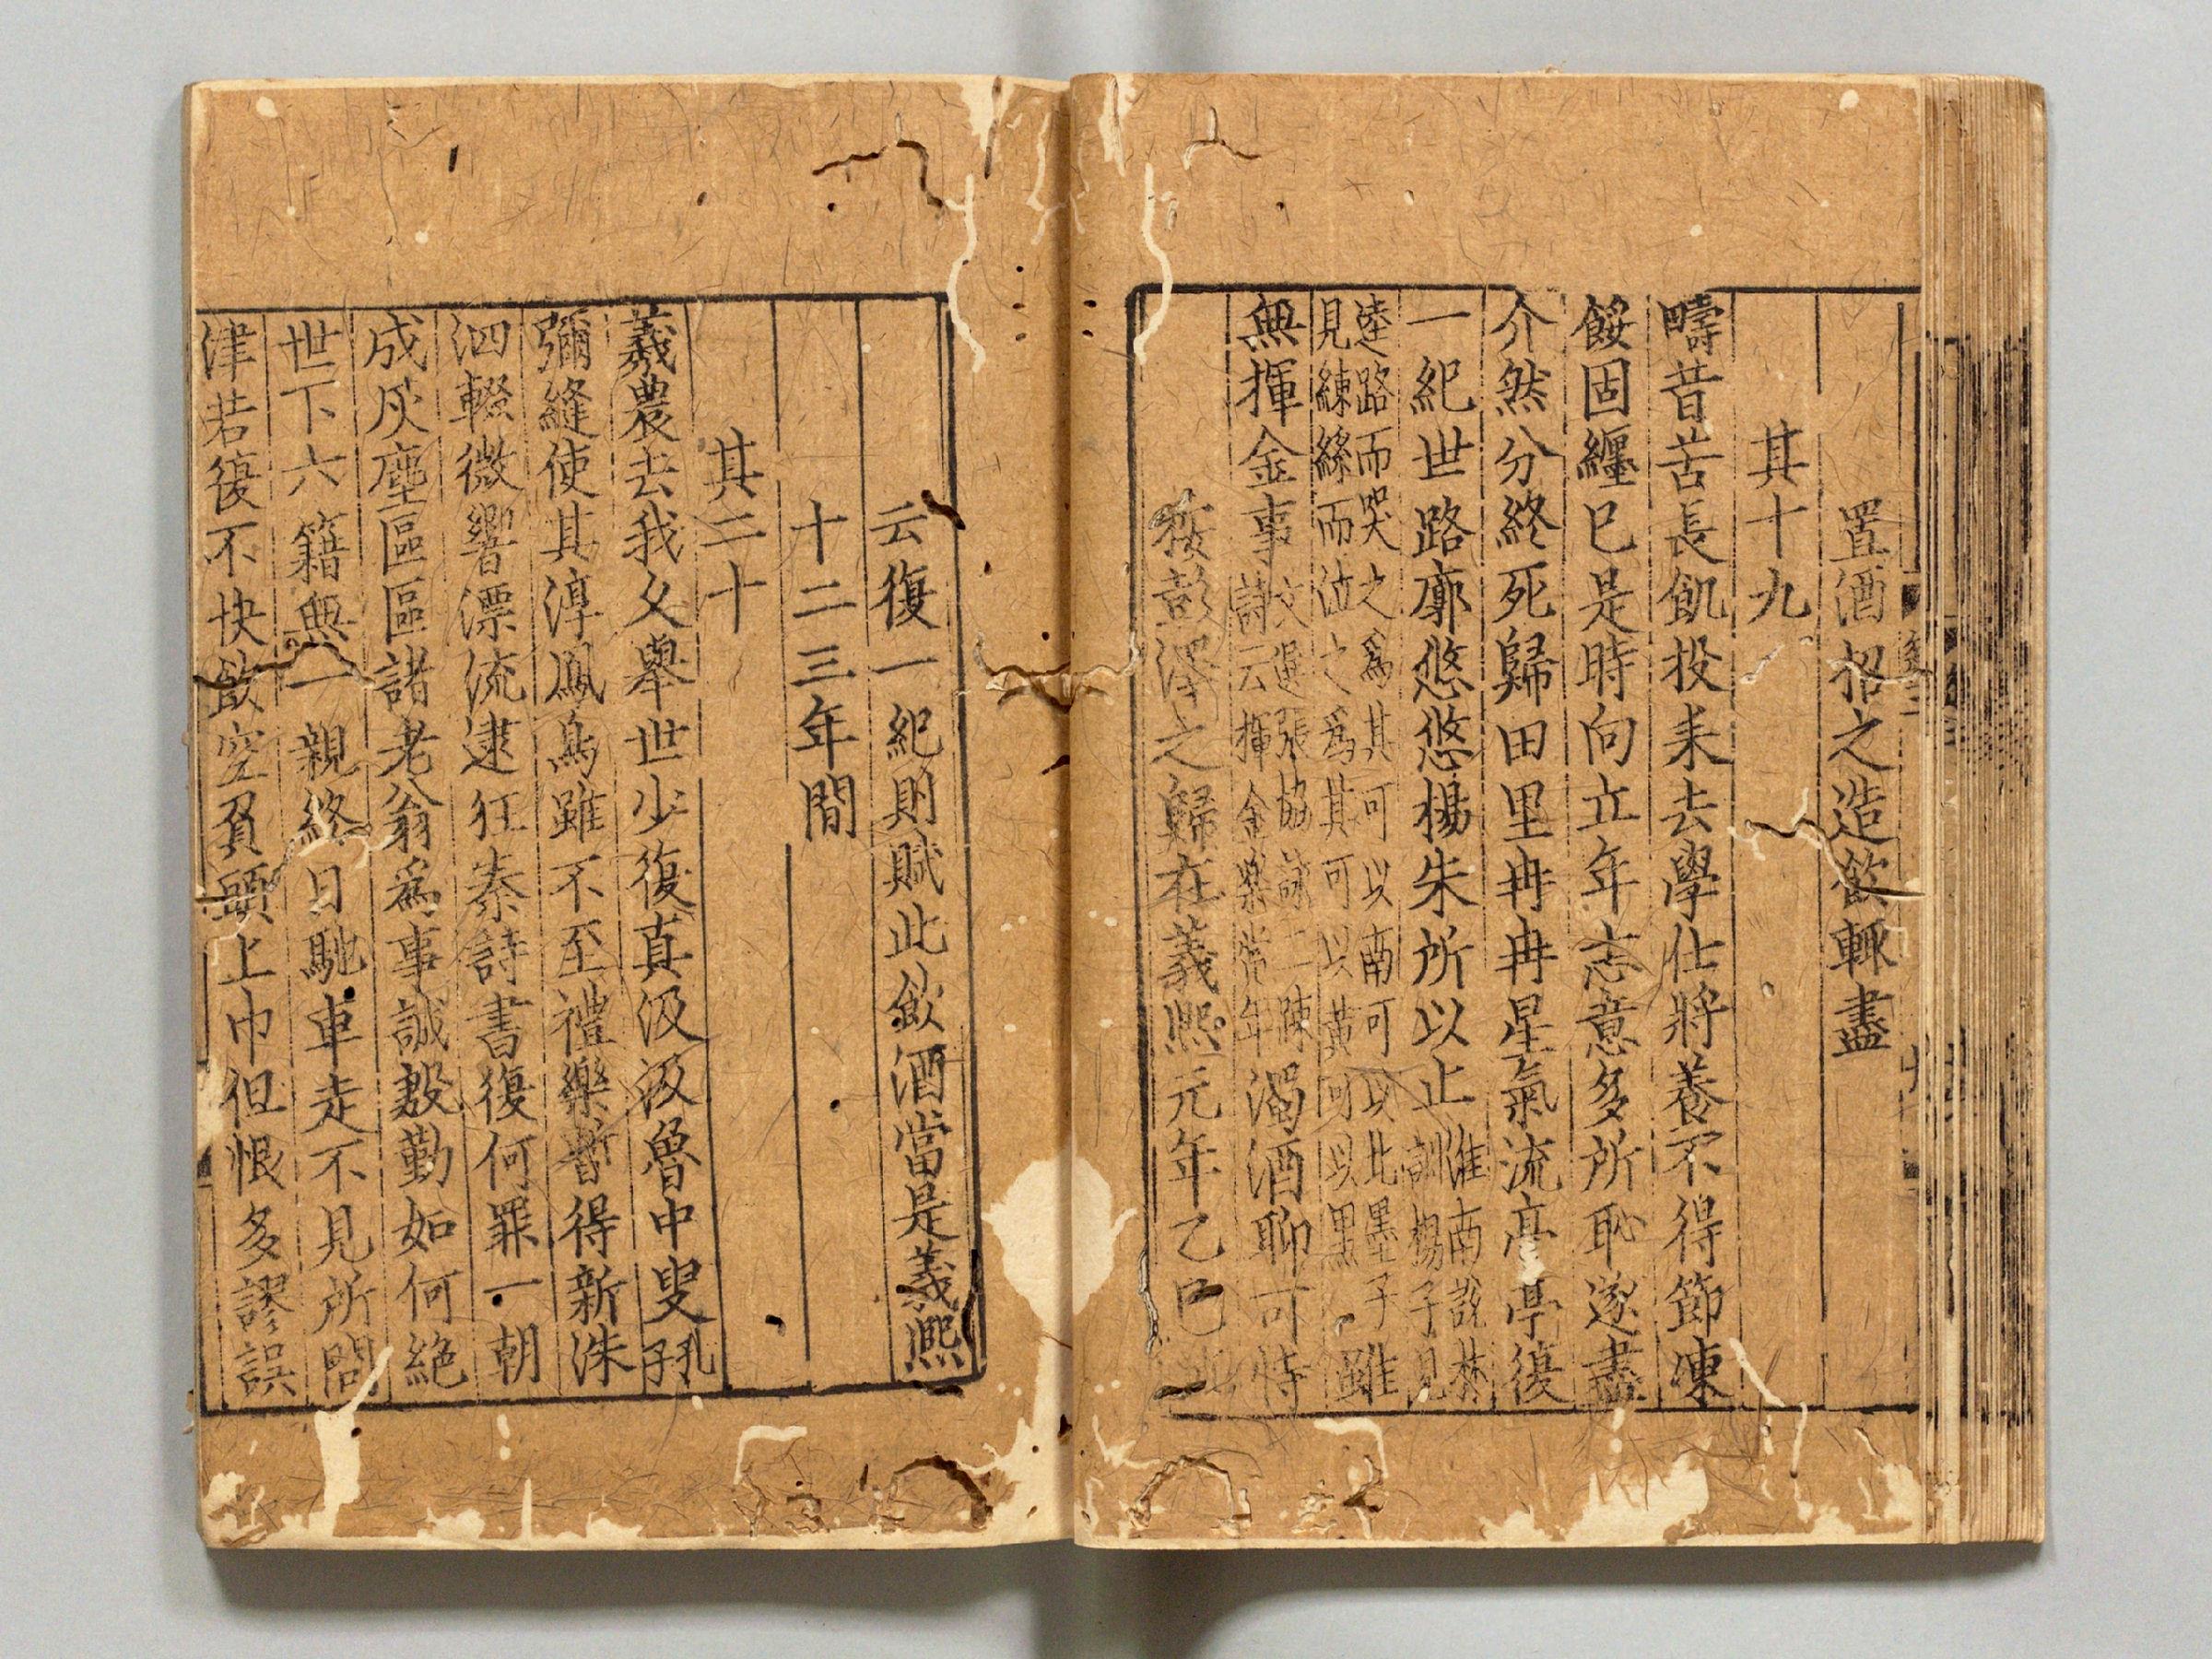 置酒招之造飮輒盡
其十九
疇昔苦長飢投耒去學仕將養不得節凍
餒固纏已是時向立年志意多所恥遂盡
介然分終死歸田里冉冉星氣流亭亭復
一紀世路廓悠悠楊朱所以止淮南說林訓楊子見
逵路而哭之爲其可以南可以北墨子見練絲而泣之爲其可以黃可以黑雖
無揮金事文選張協詠二疎詩云揮金樂當年濁酒聊可恃
按彭澤之歸在義熙元年乙巳此
云復一紀則賦此飮酒當是義熙
十二三年間
其二十
羲農去我久舉世少復真汲汲魯中叟
彌縫使其淳鳳鳥雖不至禮樂暫得新洙
泗輟微響漂流逮狂秦詩書復何罪一朝
成灰塵區區諸老翁爲事誠殷勤如何絶
世下六籍無一親終日馳車走不見所問
津若復不快飮空負頭上巾但恨多謬誤